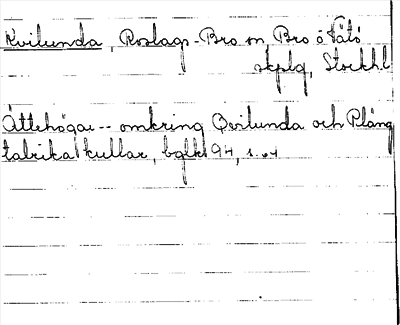 Kvilunda, Roslags-Bro sn Bro o Vätö
skplg, Stockhl
Ättehögar -- omkring Qvilunda och Pläng
fabrika kullar, bglk 94, s.